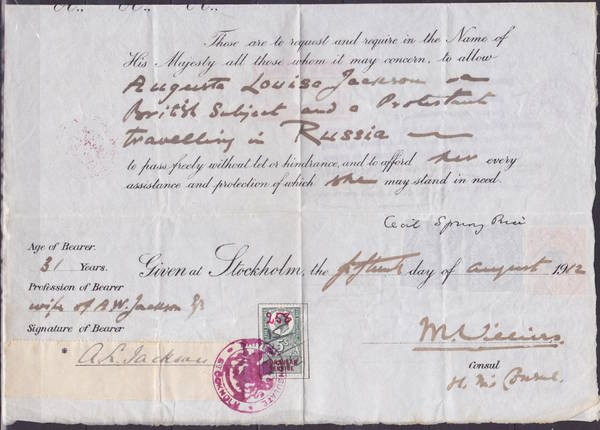 These are to request and require in the Name of
His Majesty all those whom it may concern, to allow
Augusta Louisa Jackson a
British Subject and a Protestant
travelling in Russia
to pass freely without let or hindrance, and to afford her every
assistance and protection of which she may stand in need.
Cecil Spring Rice
Age of Bearer.
31 Years.
Given at Stockholm, the fifteenth day of August 1912
Profession of Bearer
wife of A.W. Jackson
Signature of Bearer
A. L. Jackson
M. Villiers
Consul